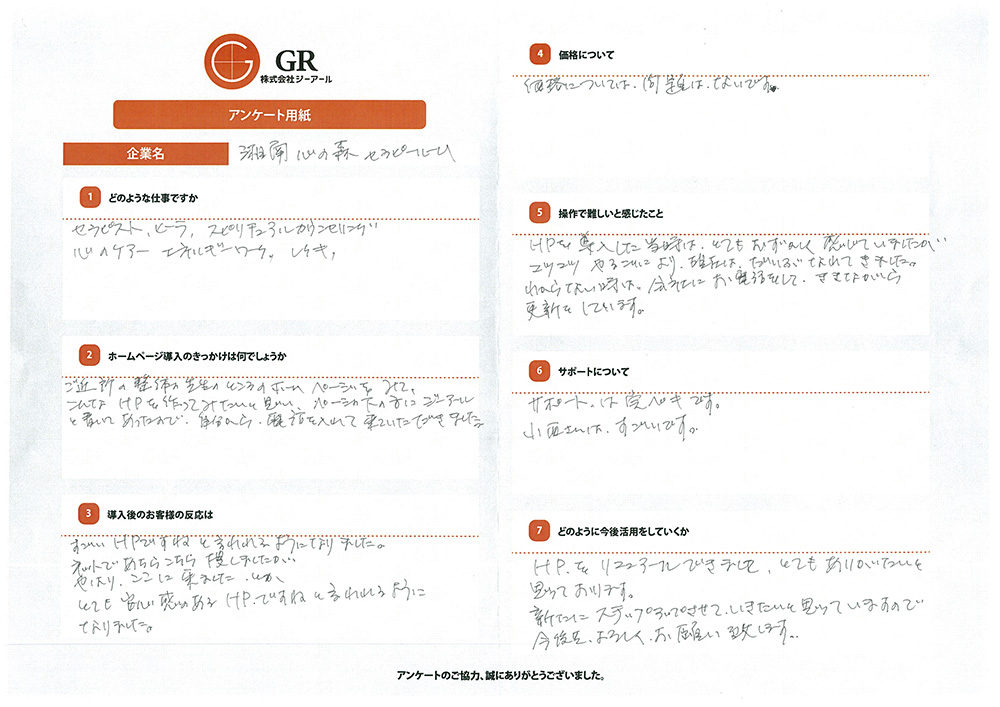 GR
株式会社ジーアール
アンケート用紙
企業名
湘南 心の森 セラピールーム
1 どのような仕事ですか
セラピスト、ヒーラー、スピリチュアルカウンセリング
心のケアー エネルギーワーク。レイキ,
2 ホームページ導入のきっかけは何でしょうか
ご近所の整体の先生のところのホームページをみて、
こんな HPを作ってみたいと思い、ページの下の方にジーアール
と書いてあったので、自分から、電話を入れて来ていただきました
3 導入後のお客様の反応は
すごい HPですね と言われるようになりました。
ネットで あちらこちら 探しましたが…
やはり、ここに来ました、とか
とても 安心感のある HP.ですね と言われるように
なりました。
4 価格について
価格については、問題は、ないです。
5 操作で難しいと感じたこと
HPを導入した当時は、とてもむずかしく 感じていましたが
コツコツ やることにより、現在は、だいぶなれてきました。
わからない時は、会社に お電話をして、ききながら
更新をしています。
6 サポートについて
サポート、は 完ペキです。
小西さんは、すごいです。
7 どのように今後活用をしていくか
HP.を リニューアルできまして、とても ありがたいと
思っております。
新たに ステップUPさせて、いきたいと思っていますので
今後とも、よろしく、お願い致します。
アンケートのご協力、誠にありがとうございました。